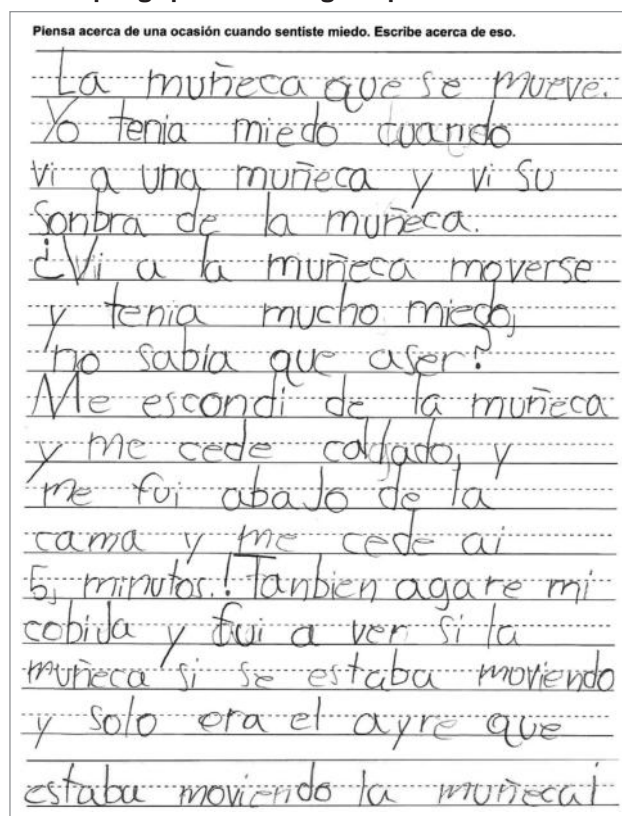 Piensa acerca de una ocasión cuando sentiste miedo. Escribe acerca de eso.
La muñeca que se mueve.
Yo tenia miedo cuando
vi a una muñeca y vi su
sonbra de la muñeca.
¿Vi a la muñeca moverse
y tenia mucho miedo,
no sabia que aser?
Me escondi de la muñeca
y me cede calljado, y
me fui abaJo de la
cama y me cede ai
5, minutos.! Tanbien agare mi
cobida y fui a ver si la
muñeca si se estaba moviendo
y solo era el ayre que
estaba moviendo la muñeca¡